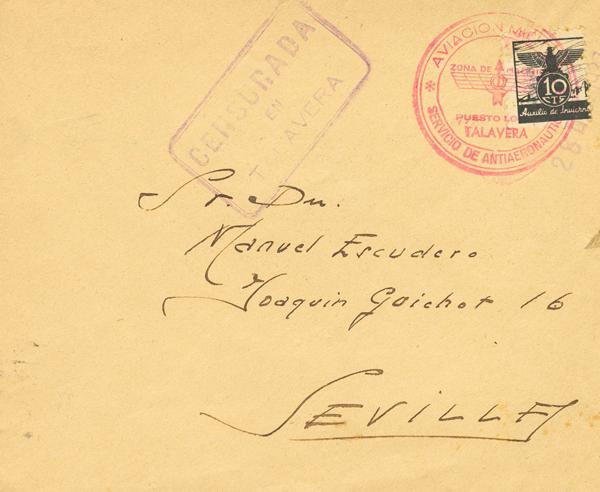 CENSURADA
EN
TALAVERA
* AVIACION
ZONA DE A
PUESTO LO
TALAVERA
SERVICIO DE ANTIAERONAUTI
10
CTS
Auxilio de Invierno
Sr. Dn.
Manuel Escudero
Joaquin Guichot 16
SEVILLA